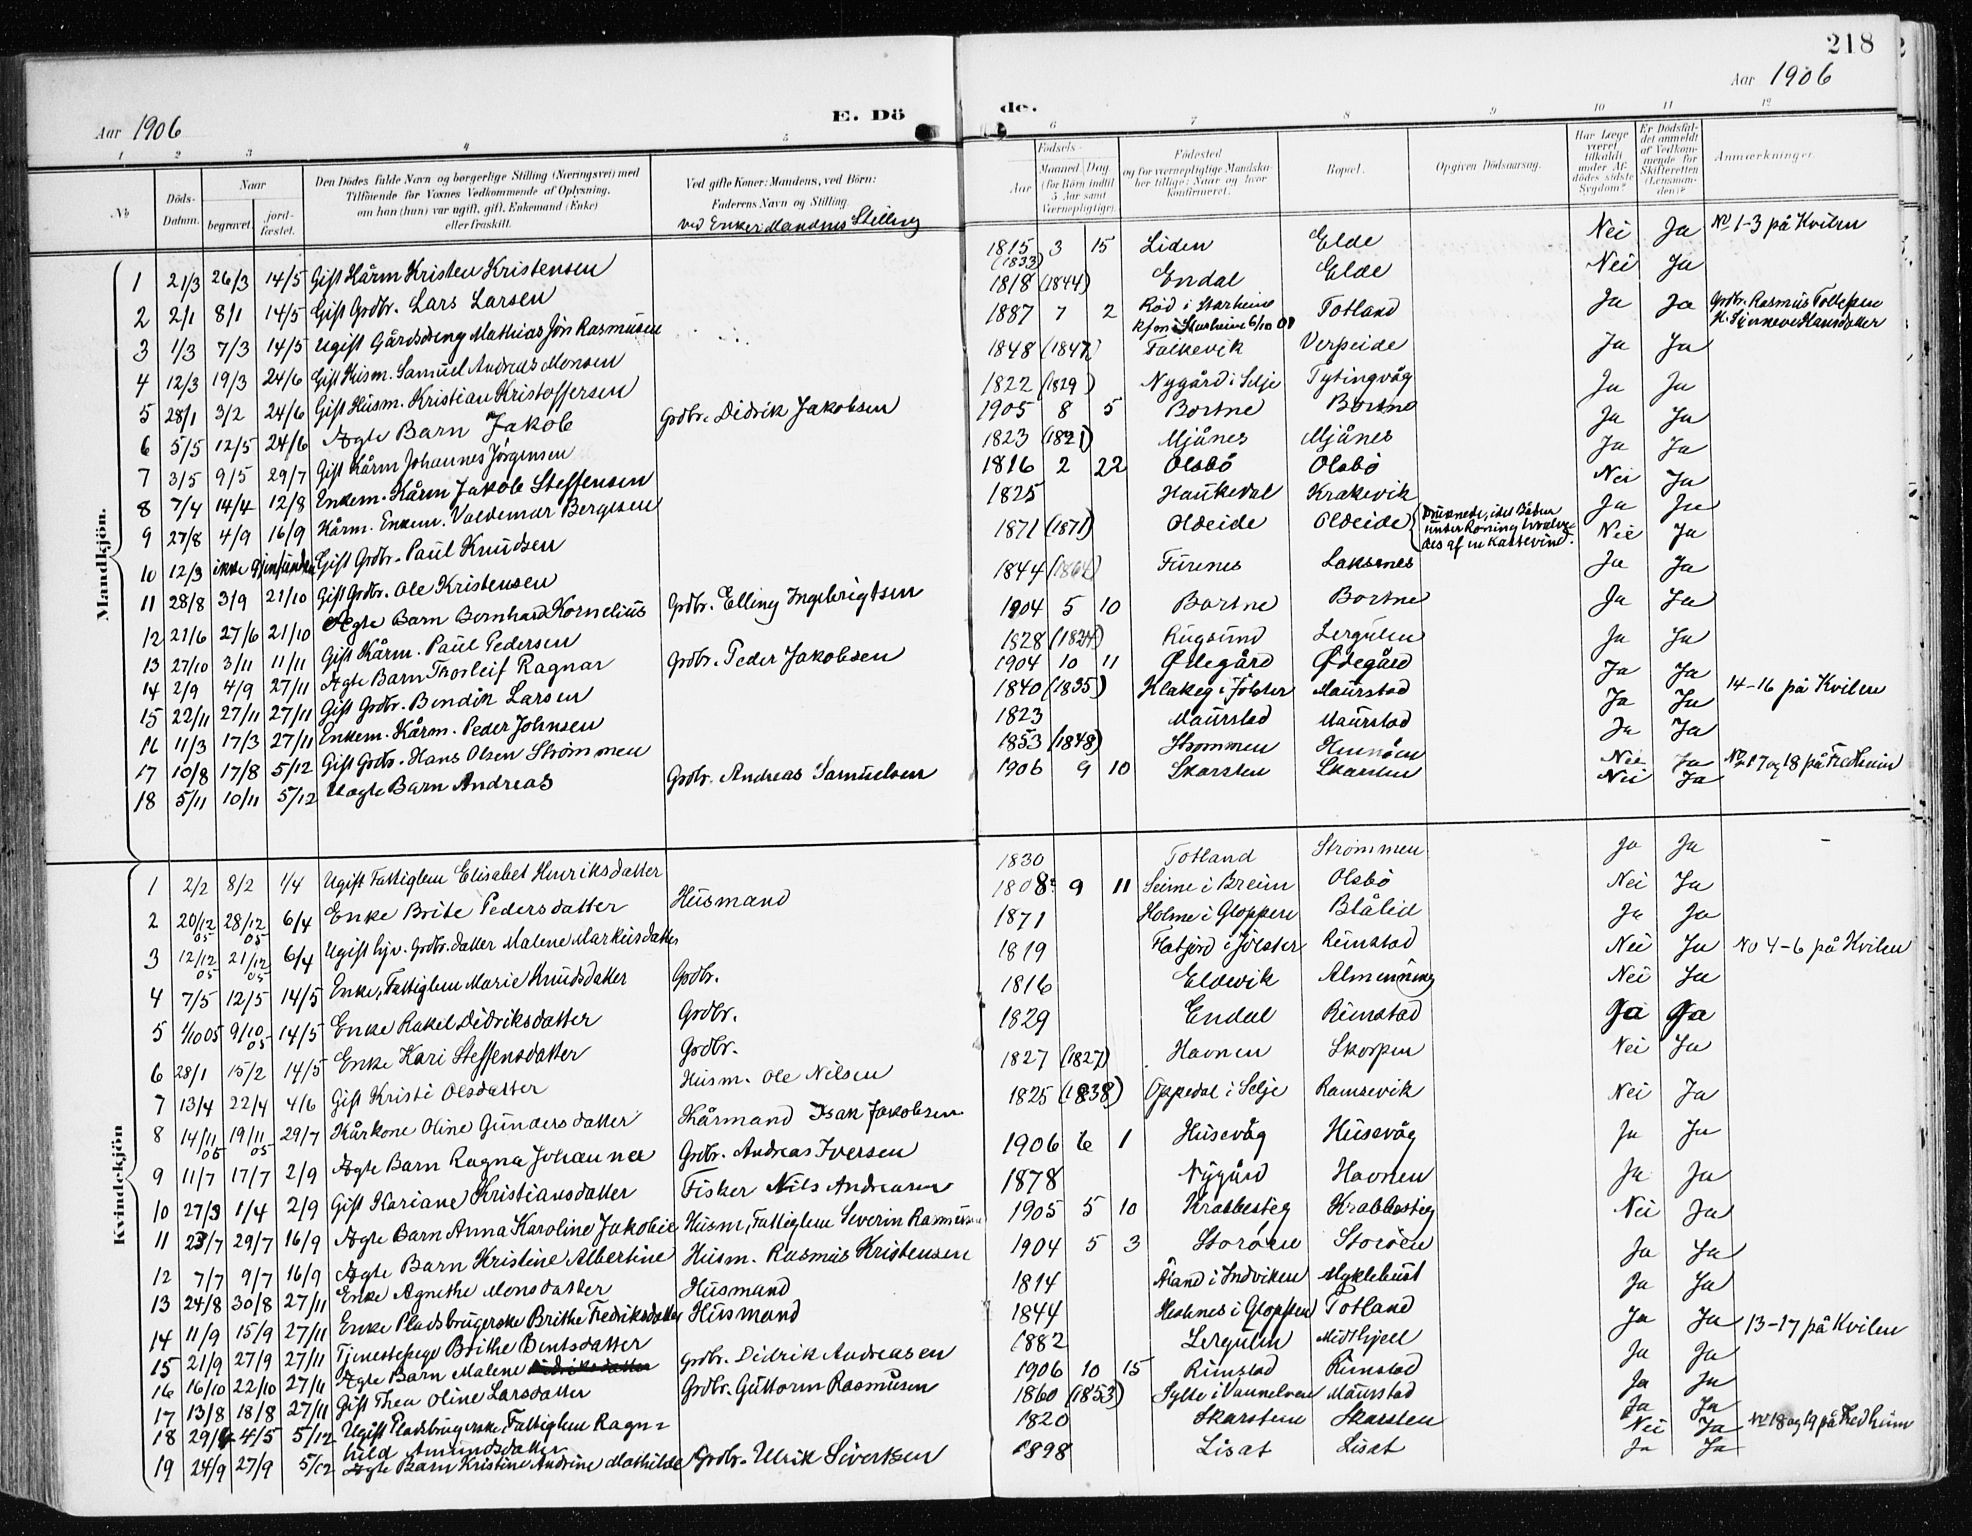 218
Aar 1906
E. Dö
de.
Aar 1906
1 2 3 4 5 6 7 8 9 10 11 12
No
Döds-Datum.
Naar
begravet.
jord-fæstet.
Den Dödes fulde Navn og borgerlige Stilling (Næringsvei) med
Tilföiende for Voxnes Vedkommende af Oplysning,
om han (hun) var ugift, gift, Enkemand (Enke)
eller fraskilt.
Ved gifte Koner: Mandens, ved Börn:
Faderens Navn og Stilling.
ved Enker: Mandens Stilling
Födsels-
Aar
Maaned Dag
(for Börn indtil
5 Aar samt
Værnepligtige).
Födested
og for værnepligtige Mandska-
ber tillige: Naar og hvor
konfirmeret.
Bopæl.
Opgiven Dödsaarsag.
Har Læge
været
tilkaldt
under Af-
dödes sidste
Sygdom?
Er Dödsfal-
det anmeldt
af Vedkom-
mende for
Skifteretten
(Lensman-
den)?
Anmærkninger.
Mandkjön.
1 21/3 26/3 14/5 Gift Kårm Kristen Kristensen 1815 (1833) 3 15 Liden Elde Nei Ja No 1-3 på Kvilen
2 2/1 8/1 14/5 Gift Grdbr. Lars Larsen 1818 (1844) Endal Elde Nei Ja
3 1/3 7/3 14/5 Ugift Gårdsdreng Mathias Jön Rasmusen 1887 7 2 Röd i Starheim Kfm i Starheim 6/10 01 Totland Ja Ja Grdbr. Rasmus Tollefsen
4 12/3 19/3 24/6 Gift Husm. Samuel Andreas Monsen 1848 (1847) Falkevik Verpeide Ja Ja
5 28/1 3/2 24/6 Gift Husm. Kristian Kristoffersen 1822 (1829) Nygård i Selje Tytingvåg Ja Ja
6 5/5 12/5 24/6 Ægte Barn Jakob Grdbr. Didrik Jakobsen 1905 8 5 Bortne Bortne Ja Ja
7 3/5 9/5 29/7 Gift Kårm Johannes Jörgensen 1823 (1821) Mjånes Mjånes Ja Ja
8 7/4 14/4 12/8 Enkem. Kårm Jakob Steffensen 1816 2 22 Olsbö Olsbö Nei Ja
9 27/8 4/9 16/9 Kårm. Enkem. Valdemar Bergesen 1825 Haukedal Krakevik Ja Ja
10 12/3 ikke gjenfunden Gift Grdbr. Paul Knudsen 1871 (1871) Oldeide Oldeide Druknede, idet Båden under Roning hvælve-des af en Kastevind. Nei Ja
11 28/8 3/9 21/10 Gift Grdbr. Ole Kristensen 1844 (1864) Furenes Laksenes Ja Ja
12 21/6 27/6 21/10 Ægte Barn Bernhard Kornelius Grdbr. Elling Ingebrigtsen 1904 5 10 Bortne Bortne Ja Ja
13 27/10 3/11 11/11 Gift Kårm. Paul Pedersen 1828 (1834) Rugsund Lergulen Ja Ja
14 2/9 4/9 27/11 Ægte Barn Thorleif Ragnar Grdbr. Peder Jakobsen 1904 10 11 Ødegård Ødegård Ja Ja 14-16 på Kvilen
15 22/11 27/11 27/11 Gift Grdbr. Bendik Larsen 1840 (1835) Klakeg i Jölster Maurstad Ja Ja
16 11/3 17/3 27/11 Enkem. Kårm. Peder Johnsen 1823 Maurstad Maurstad Ja Ja
17 10/8 17/8 5/12 Gift Grdbr. Hans Olsen Strömmen 1853 (1848) Strommen Hennöen Nei Ja No 17 og 18 på Fredheim
18 5/11 10/11 5/12 Uægte Barn Andreas Grdbr. Andreas Samuelsen 1906 9 10 Skarsten Skarsten Nei Ja
Kvindekjön
1 2/2 8/2 1/4 Ugift Fattiglem Elisabet Henriksdatter 1830 Totland Strömmen Ja Ja
2 20/12 05 28/12 05 6/4 Enke Brite Pedersdatter Husmand 1808 9 11 Seime i Breim Olsbö Nei Ja
3 12/12 05 21/12 05 6/4 Ugift hjv. Grdbr.datter Malene Markusdatter 1871 Holme i Gloppen Blålid Ja Ja
4 7/5 12/5 14/5 Enke, Fattiglem Marie Knudsdatter Grdbr. 1819 Flatjord i Jölster Rimstad Nei Ja No 4-6 på Kvilen
5 1/10 05 9/10 05 14/5 Enke Rakel Didriksdatter Grdbr. 1816 Eldevik Almenning Nei Ja
6 28/1 15/2 14/5 Enke Kari Steffensdatter Grdbr. 1829 Endal Rimstad Ja Ja
7 13/4 22/4 4/6 Gift Kristi Olsdatter Husm. Ole Nilsen 1827 (1827) Havnen Skorpen Nei Ja
8 14/11 05 19/11 05 29/7 Kårkone Oline Gundersdatter Kårmand Isak Jakobsen 1825 (1838) Oppedal i Selje Ramsevik Nei Ja
9 11/7 17/7 2/9 Ægte Barn Ragna Johanne Grdbr. Andreas Iversen 1906 6 1 Husevåg Husevåg Ja Ja
10 27/3 1/4 2/9 Gift Kariane Kristiansdatter Fisker Nils Andreasen 1878 Nygård Havnen Ja Ja
11 23/7 29/7 16/9 Ægte Barn Anna Karoline Jakobie Husm, Fattiglem Severin Rasmusen 1905 5 10 Krabbestig Krabbestig Nei Ja
12 7/7 9/7 16/9 Ægte Barn Kristine Albertine Husm. Rasmus Kristensen 1904 5 3 Storöen Storöen Ja Ja
13 24/8 30/8 27/11 Enke Agnethe Monsdatter Husmand 1814 Åland i Indviken Myklebust Ja Ja
14 11/9 15/9 27/11 Enke Pladsbrugerske Brithe Fredriksdatter Husmand 1844 i Gloppen Totland Ja Ja 13-17 på Kvilen
15 21/9 27/9 27/11 Tjenestepige Brithe Bentsdatter 1882 Lergulen Midthjell Ja Ja
16 16/10 22/10 27/11 Ægte Barn Malene Grdbr. Didrik Andreasen 1906 10 15 Rimstad Rimstad Ja Ja
17 13/8 18/8 27/11 Gift Thea Oline Larsdatter Grdbr. Guttorm Rasmusen 1860 (1853) Sylte i Vannelven Maurstad Ja Ja
18 29/4 4/5 5/12 Ugift Pladsbrugerske Fattiglem Ragn=hild Amundsdatter 1820 Skarsten Skarsten Nei Ja No 18 og 19 på Fredheim
19 24/9 27/9 5/12 Ægte Barn Kristine Andrine Mathilde Grdbr. Ulrik Sivertsen 1898 Lisæt Lisæt Ja Ja